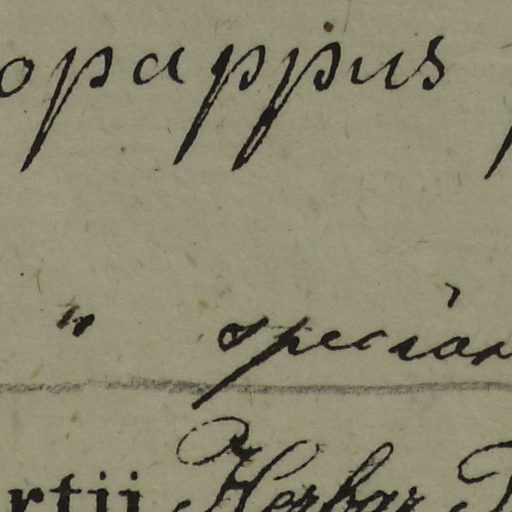 opappus
" specios
rtii Herbar